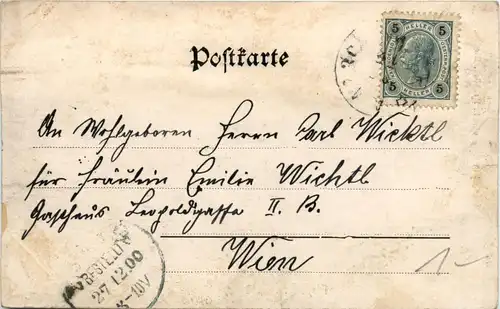 Postkarte
5 HELLER 5
5 HELLER 5
An Wohlgeboren Herrn Carl Wichtl
für Fräulein Emilie Wichtl
Gasthaus Leopoldgasse II. B.
Wien
BESTELLT
27.12.00
8-10V